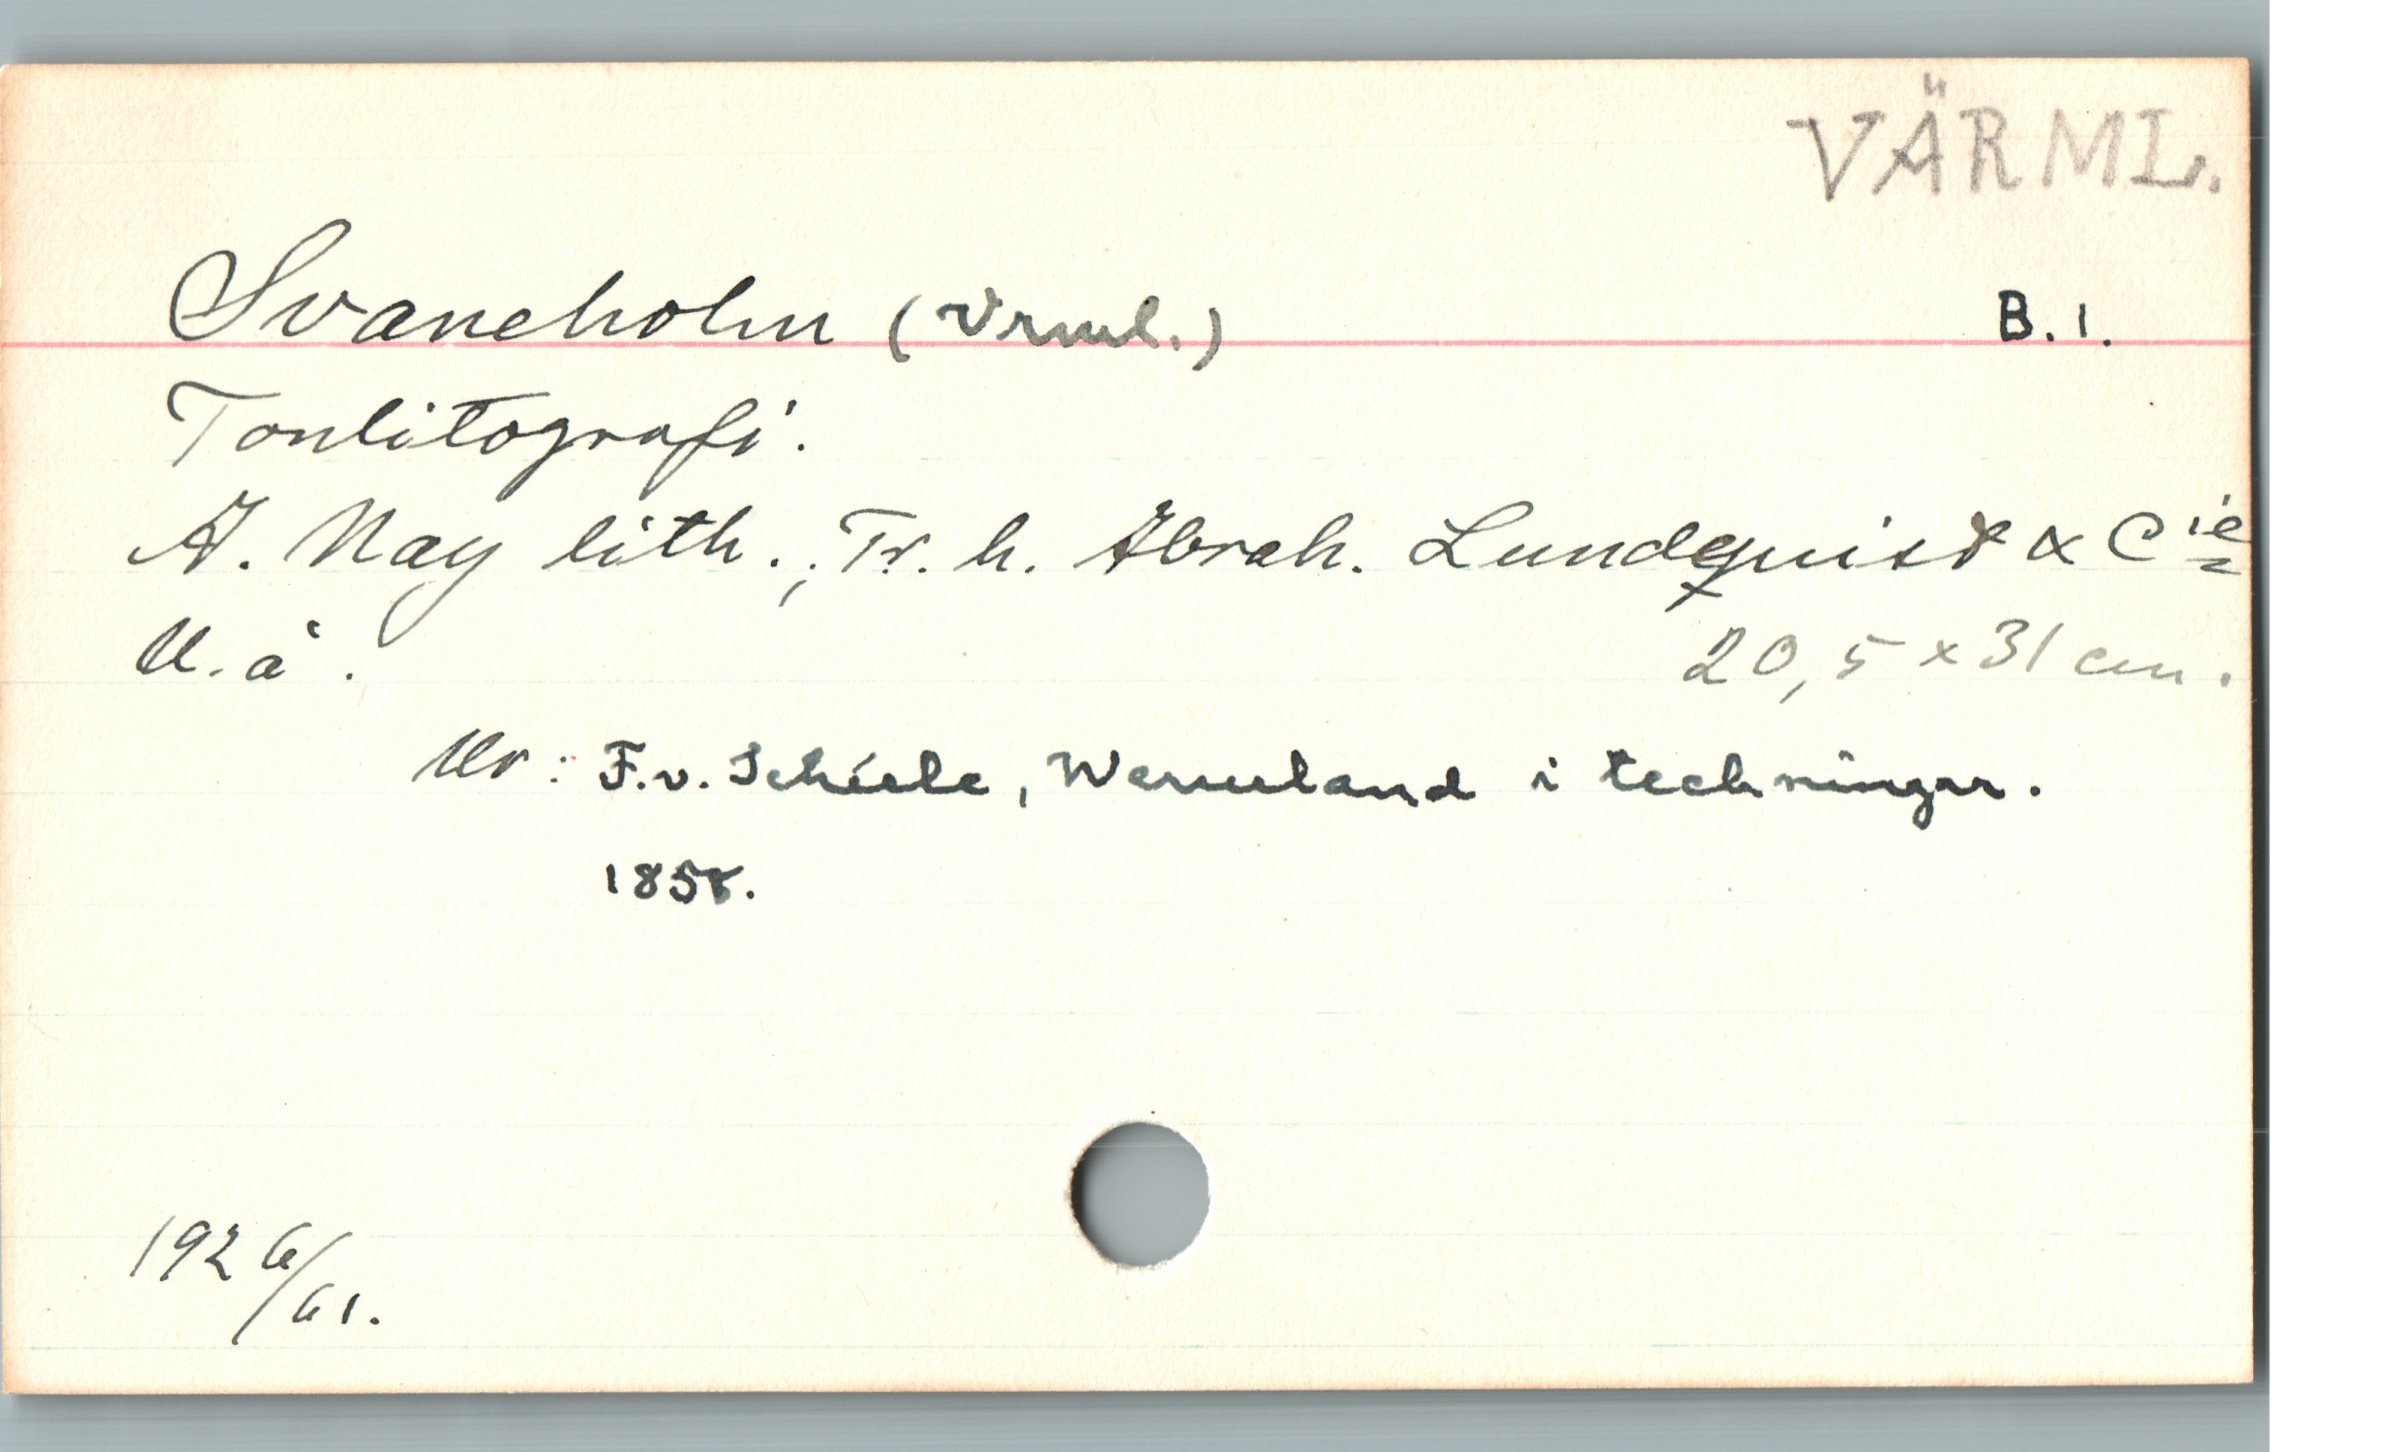 VÄRML.
Svaneholm (Vrml.) B. 1.
Tonlitografi.
A. Nay lith.; Tr. h. Abrah. Lundquist & Cie
U. å. 20,5 x 31 cm.
Ur: F. v. Schéele, Wermland i teckningar.
1858.
1926/61.